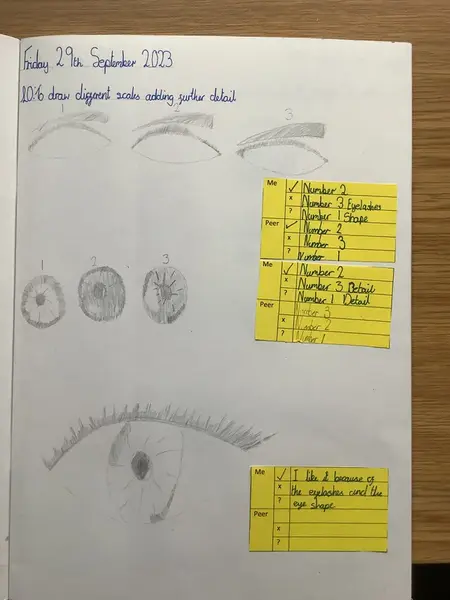 Friday 29th September 2023
LO: to draw different scales adding further detail
1 2 3
Me ✓ Number 2
x Number 3 Eyelashes
? Number 1 Shape
Peer ✓ Number 2
x Number 3
? Number 1
1 2 3
Me ✓ Number 2
x Number 3 Detail
? Number 1 Detail
Peer Number 3
x Number 2
? Number 1
Me ✓ I like it because of
x the eyelashes and the
? eye shape
Peer
x
?